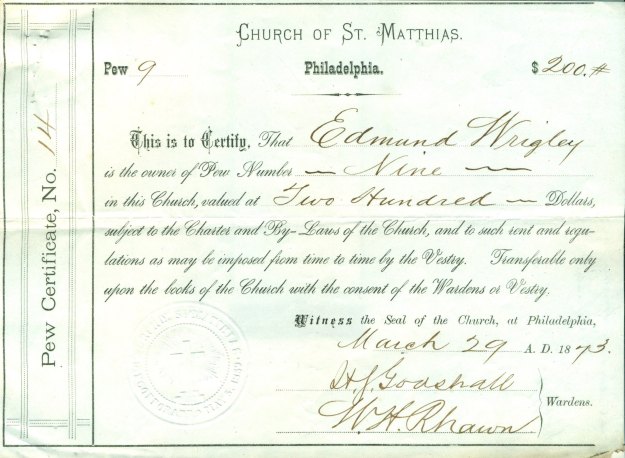 Pew Certificate, No. 14
CHURCH OF ST. MATTHIAS.
Pew 9 Philadelphia. $ 200.#
This is to Certify, That Edmund Wrigley
is the owner of Pew Number — Nine —
in this Church, valued at Two Hundred — Dollars,
subject to the Charter and By-Laws of the Church, and to such rent and regu-
lations as may be imposed from time to time by the Vestry. Transferable only
upon the books of the Church with the consent of the Wardens or Vestry.
Witness the Seal of the Church, at Philadelphia,
March 29 A. D. 1873.
H. J. Godshall
W. H. Rhawn
Wardens.